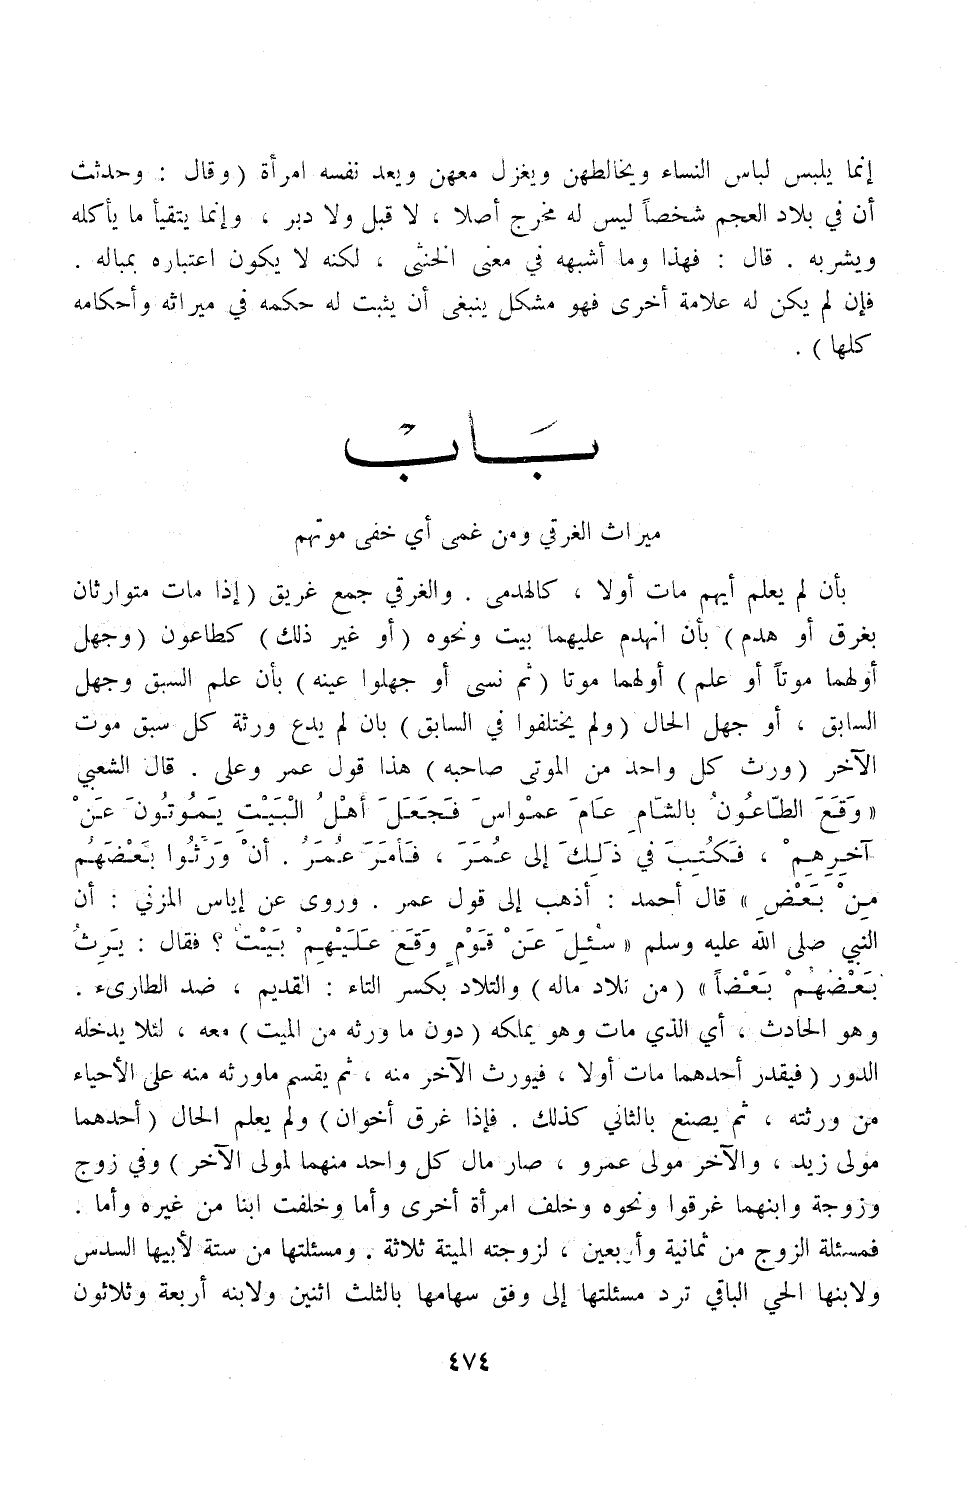 إنما يلبس لباس النساء ويخالطهن ويغزل معهن ويعد نفسه امرأة ( وقال : وحدثت
أن في بلاد العجم شخصاً ليس له مخرج أصلا ، لا قبل ولا دبر ، وإنما يتقيأ ما يأكله
ويشربه . قال : فهذا وما أشبهه في معنى الخنثى ، لكنه لا يكون اعتباره بمباله .
فإن لم يكن له علامة أخرى فهو مشكل ينبغى أن يثبت له حكمه في ميراثه وأحكامه
كلها ) .
بَابْ
ميراث الغرقي ومن غمى أي خفى موتهم
بأن لم يعلم أيهم مات أولا ، كالهدمى . والغرقي جمع غريق ( إذا مات متوارثان
بغرق أو هدم ) بأن انهدم عليهما بيت ونحوه ( أو غير ذلك ) كطاعون ( وجهل
أولهما موتاً أو علم ) أولهما موتا ( ثم نسى أو جهلوا عينه ) بأن علم السبق وجهل
السابق ، أو جهل الحال ( ولم يختلفوا في السابق ) بان لم يدع ورثة كل سبق موت
الآخر ( ورث كل واحد من الموتى صاحبه ) هذا قول عمر وعلى . قال الشعبي
« وَقَعَ الطّاعُونُ بالشّامِ عامَ عمْواسَ فَجَعَلَ أهْلُ الْبَيْتِ يَمُوتُونَ عَنْ
آخِرِهِمْ ، فَكُتِبَ في ذَلِكَ إلى عُمَرَ ، فَأمَرَ عُمَرُ . أنْ وَرِّثُوا بَعْضَهُم
مِنْ بَعْضٍ » قال أحمد : أذهب إلى قول عمر . وروى عن إياس المزني : أن
النبي صلى الله عليه وسلم « سُئِلَ عَنْ قَوْمٍ وَقَعَ عَلَيْهِمْ بَيْتٌ ؟ فقال : يَرِثُ
بَعْضُهُمْ بَعْضاً » ( من تلاد ماله ) والتلاد بكسر التاء : القديم ، ضد الطارىء .
وهو الحادث ، أي الذي مات وهو يملكه ( دون ما ورثه من الميت ) معه ، لئلا يدخله
الدور ( فيقدر أحدهما مات أولا ، فيورث الآخر منه ، ثم يقسم ماورثه منه على الأحياء
من ورثته ، ثم يصنع بالثاني كذلك . فإذا غرق أخوان ) ولم يعلم الحال ( أحدهما
مولى زيد ، والآخر مولى عمرو ، صار مال كل واحد منهما لمولى الآخر ) وفي زوج
وزوجة وابنهما غرقوا ونحوه وخلف امرأة أخرى وأما وخلفت ابنا من غيره وأما .
فمسئلة الزوج من ثمانية وأربعين ، لزوجته الميتة ثلاثة . ومسئلتها من ستة لأبيها السدس
ولابنها الحي الباقي ترد مسئلتها إلى وفق سهامها بالثلث اثنين ولابنه أربعة وثلاثون
٤٧٤